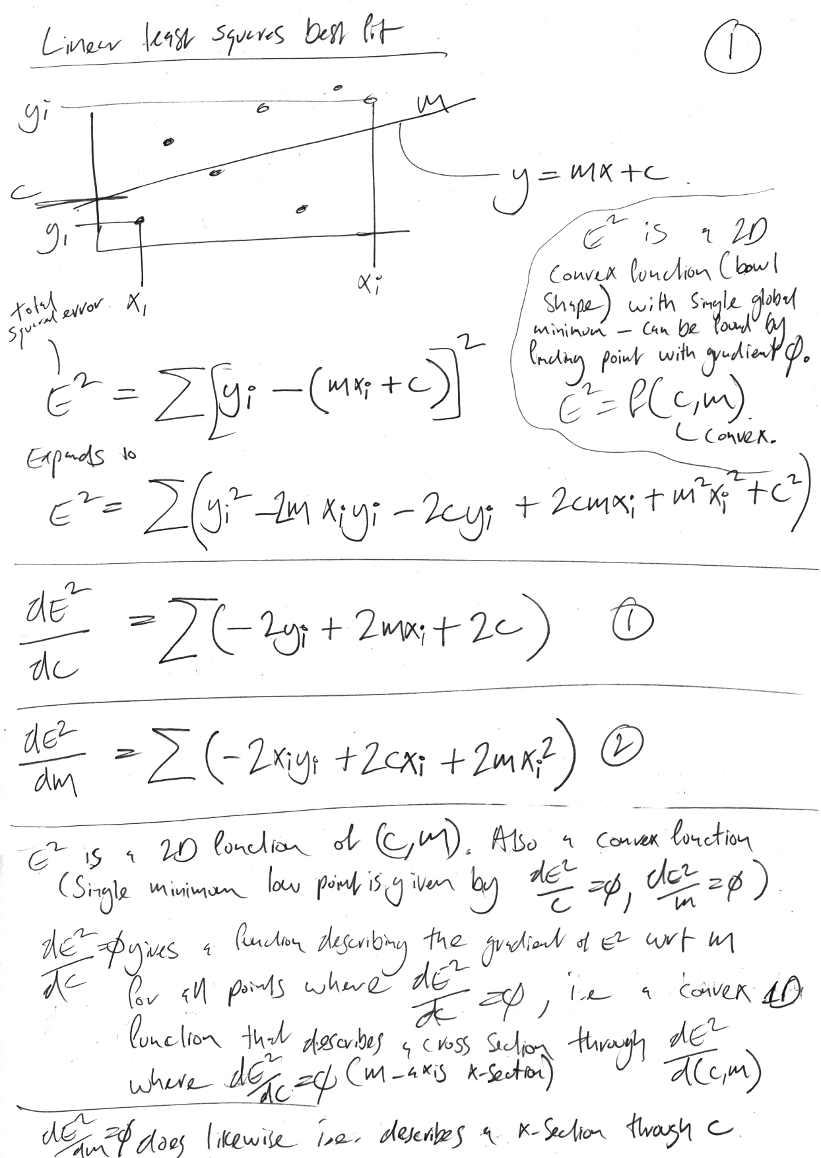 Linear least squares best fit
①
yi
m
c
y = mx + c
y1
x1
xi
E² is a 2D
convex function (bowl
shape) with single global
minimum - can be found by
finding point with gradient ϕ.
E² = f(c,m)
convex.
total
squared error.
E² = ∑[yi - (mxi + c)]²
Expands to
E² = ∑(yi² - 2mxiyi - 2cyi + 2cmxi + m²xi² + c²)
dE²/dc = ∑(-2yi + 2mxi + 2c) ①
dE²/dm = ∑(-2xiyi + 2cxi + 2mxi²) ②
E² is a 2D function of (c,m). Also a convex function
(Single minimum low point is given by dE²/c = ϕ, dE²/m = ϕ)
dE²/dc = ϕ gives a function describing the gradient of E² wrt m
for all points where dE²/dc = ϕ, i.e a convex 1D
function that describes a cross section through dE²/d(c,m)
where dE²/dc = ϕ (m-axis x-section)
dE²/dm = ϕ does likewise i.e. describes a x-section through c